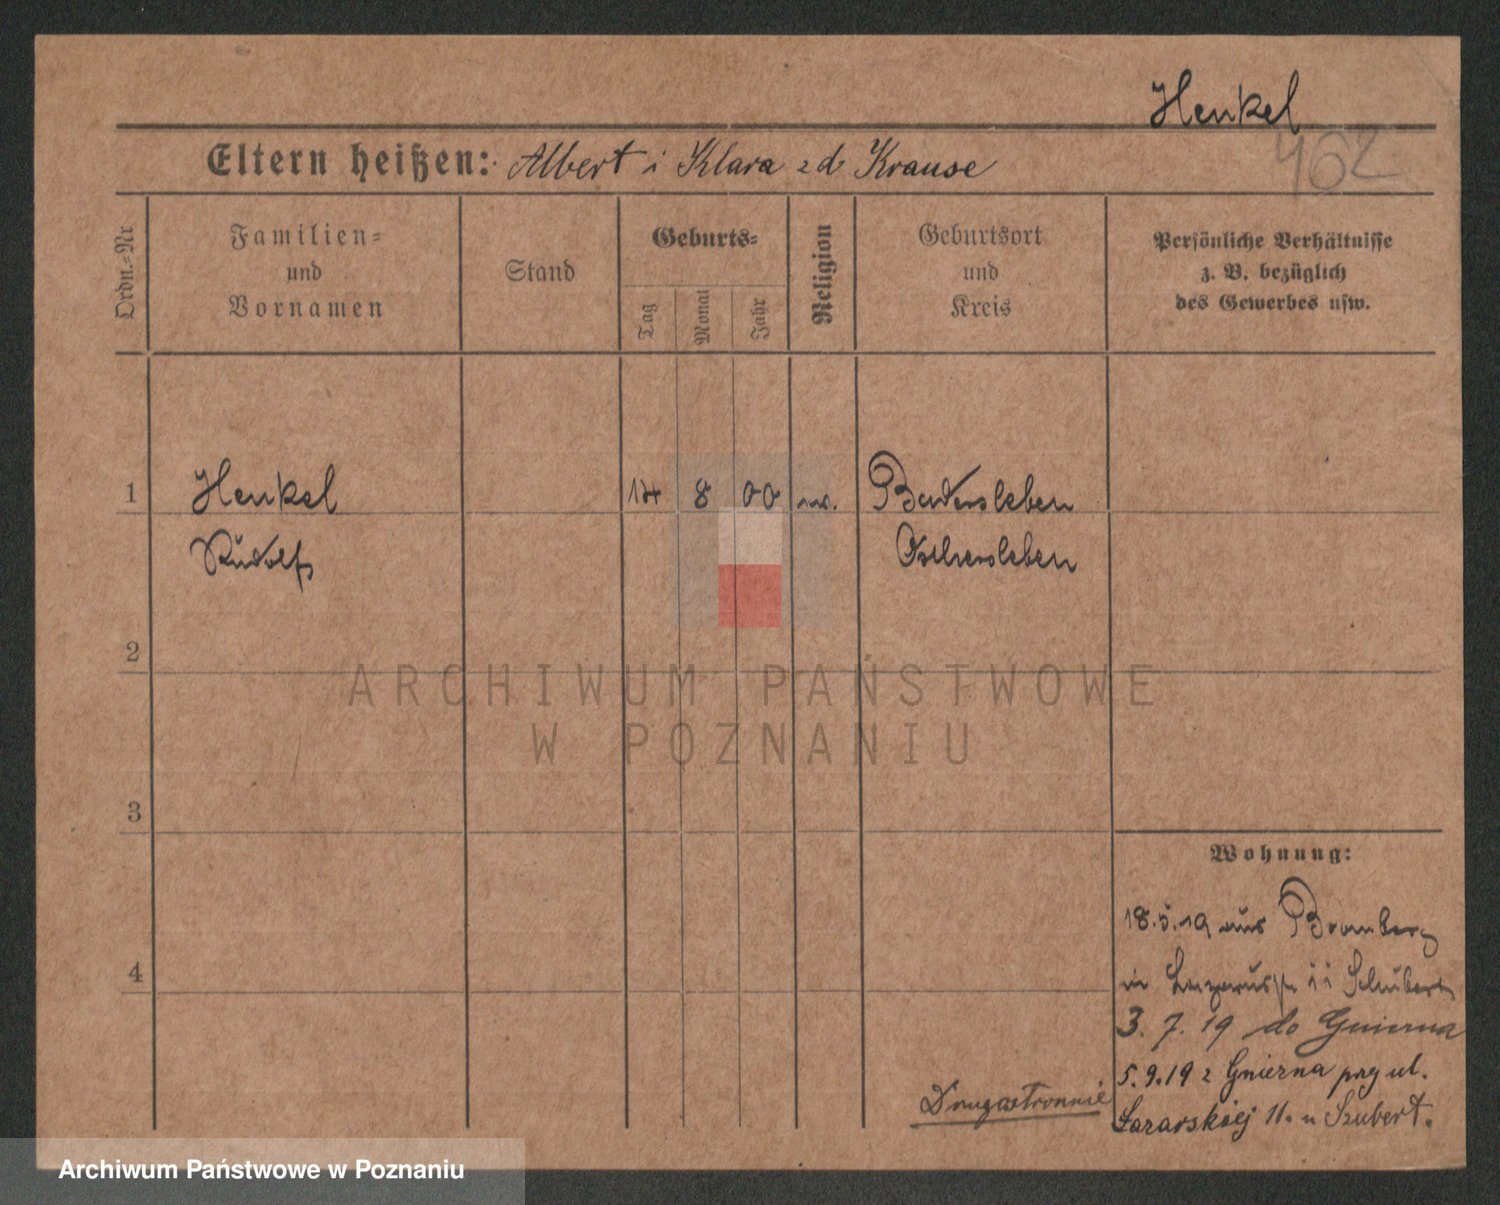 Henkel
462
Eltern heißen: Albert i Klara zd Krause
Ordn.=Nr
Familien=
und
Vornamen
Stand
Geburts=
Tag
Monat
Jahr
Religion
Geburtsort
und
Kreis
Persönliche Verhältnisse
z. B. bezüglich
des Gewerbes usw.
1
Henkel 14 8 00 Badersleben
Rudolf Oschersleben
2
3
4
Wohnung:
18.5.19 aus Bromberg
in Lazarusstr 11 Schubert
3. 7. 19 do Gniezna
5.9.19 z Gniezna przy ul.
Łazarskiej 11. u Szubert.
Drugastronnie
ARCHIWUM PAŃSTWOWE
W POZNANIU
Archiwum Państwowe w Poznaniu